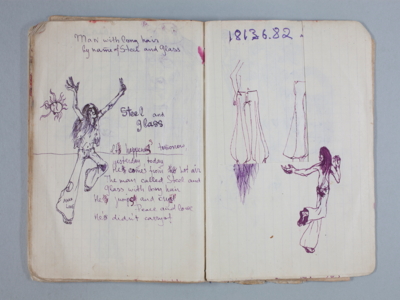 Man with long hair
by name of Steel and Glass
Steel and
glass
happened tomorrow
yesterday today
He comes from hot air
The man called Steel and
Glass with long hair
He jumps and
Peace and Love
He didn't
18136.82.